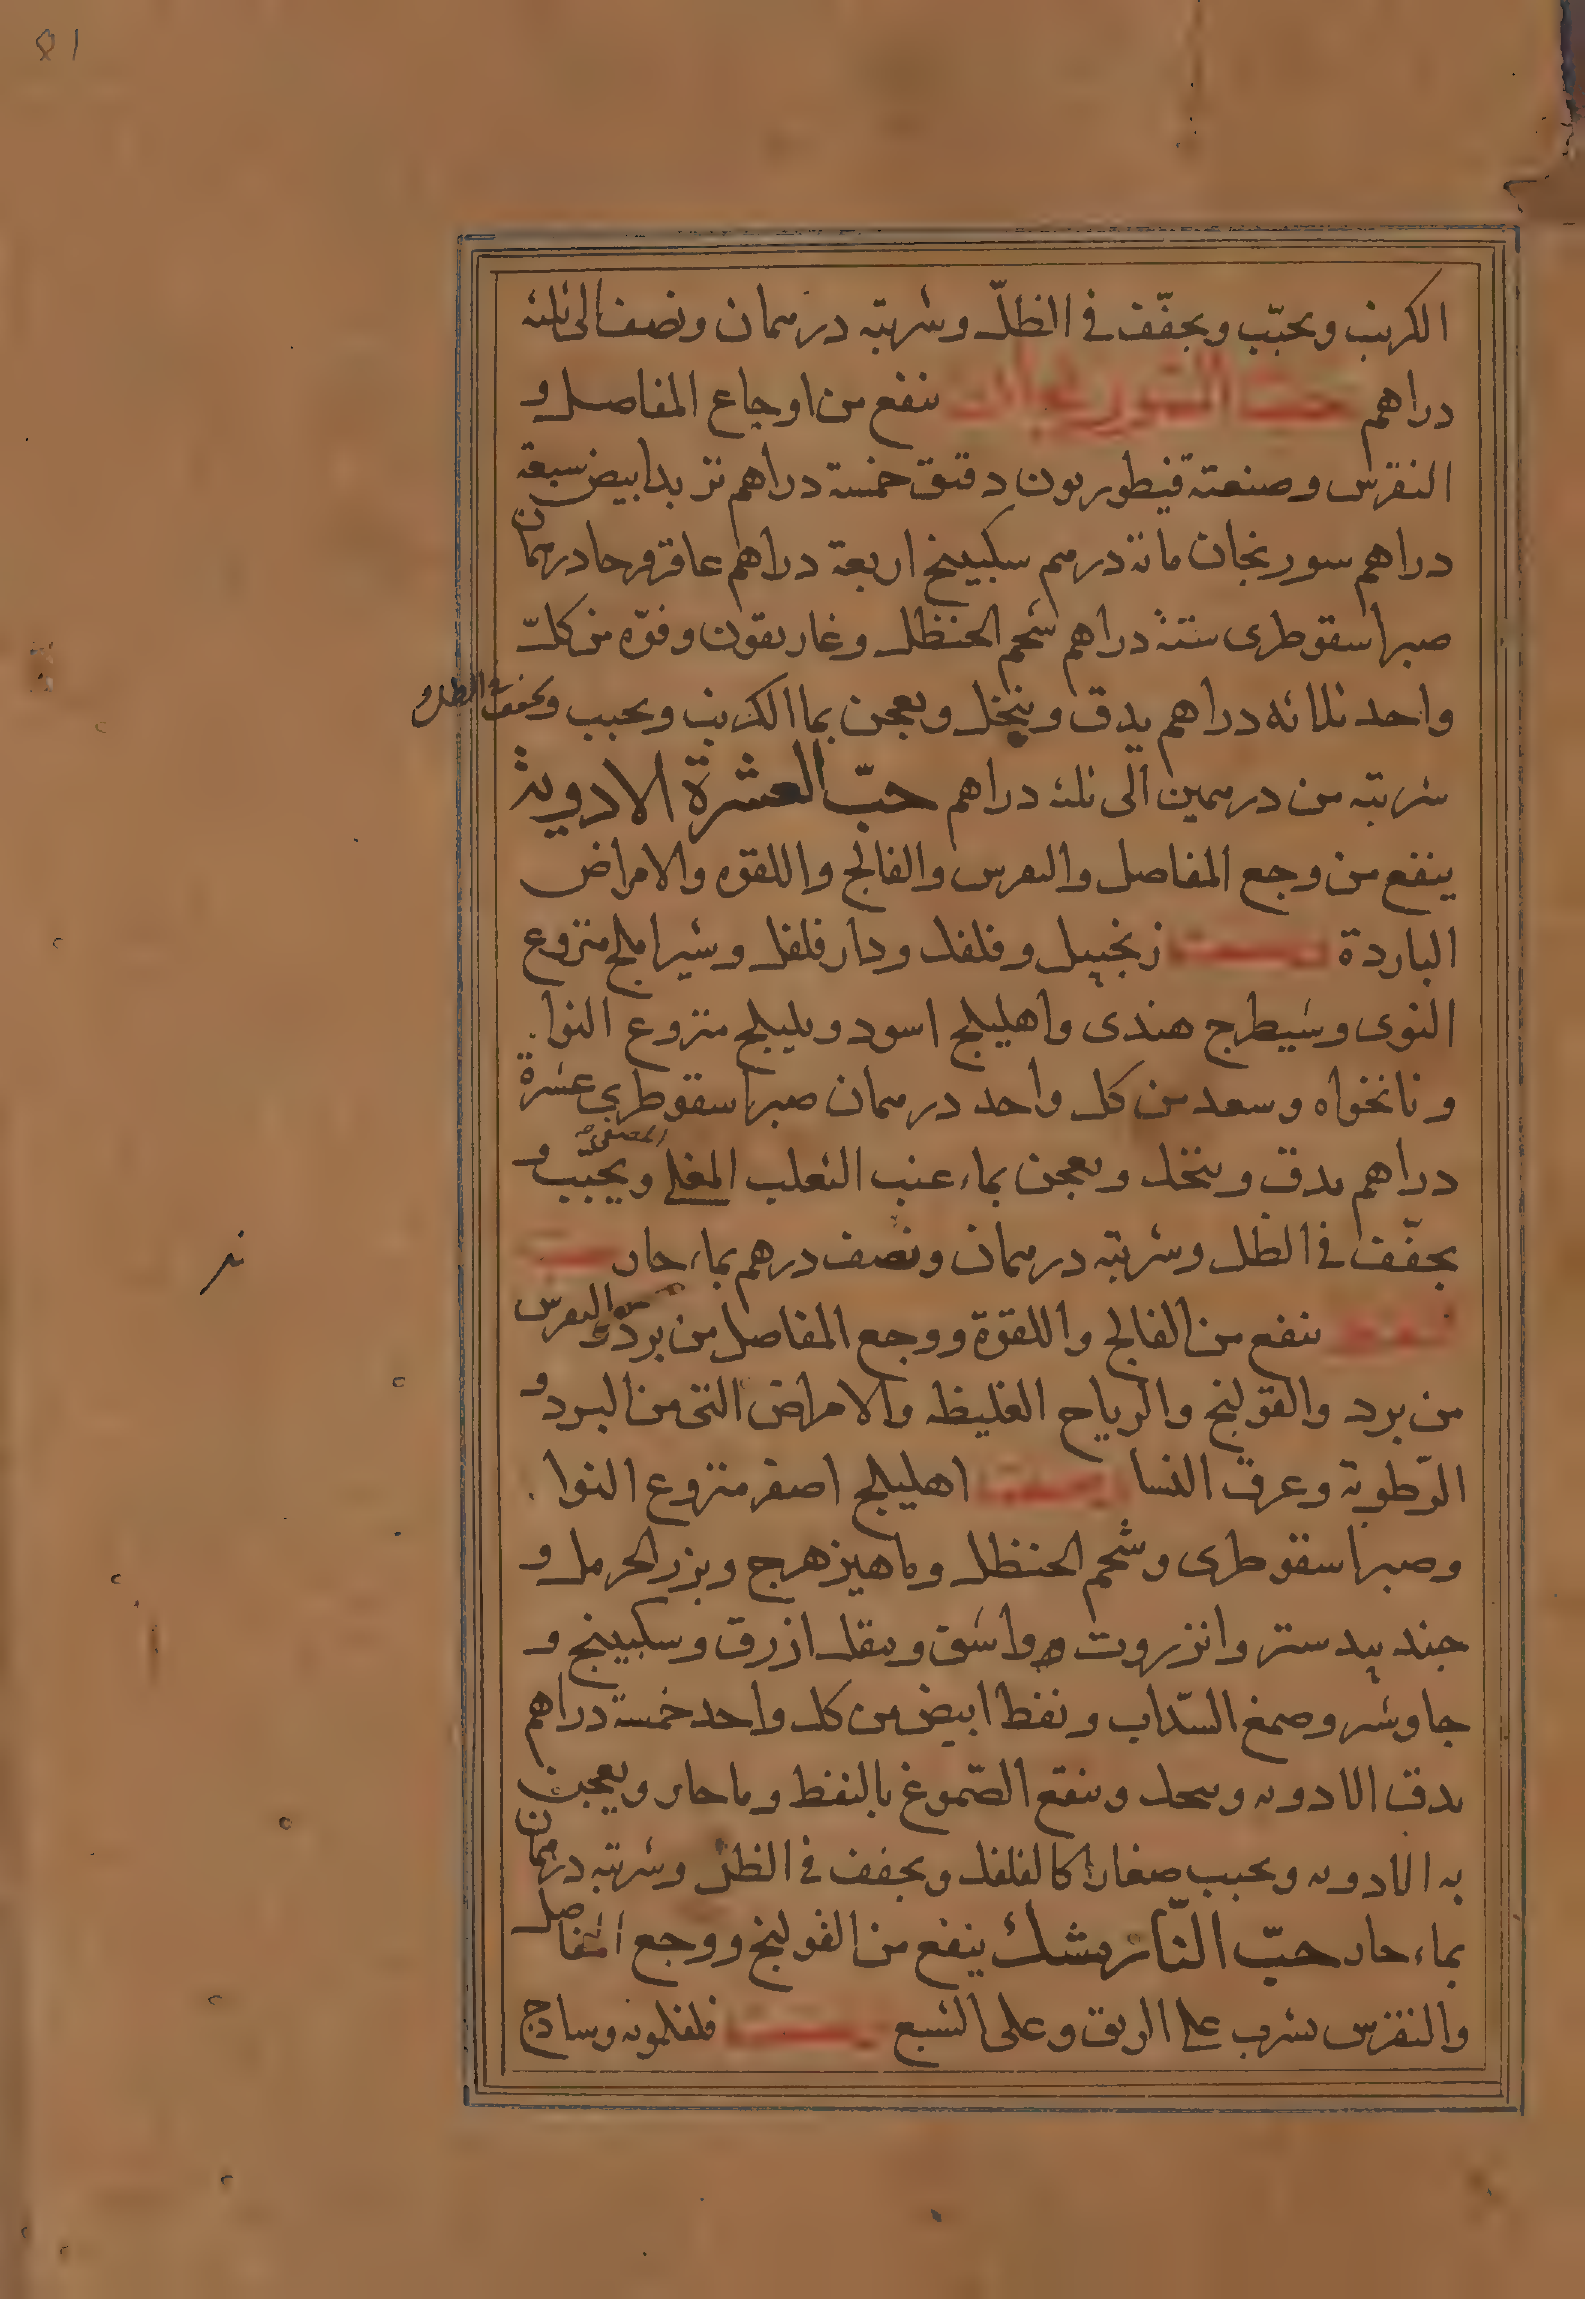 الكرنب ويحبّب ويجفّف في الظلّ وشربته درهمان ونصف الى ثلثة
دراهم حبّ السورنجان ينفع من اوجاع المفاصل و
النقرس وصنعته قنطوريون دقيق خمسة دراهم تربد ابيض سبعة
دراهم سورنجان مائة درهم سكبينج اربعة دراهم عاقرقرحا درهمان
صبر اسقوطرى ستة دراهم شحم الحنظل وغاريقون وفوّه من كلّ
واحد ثلاثه دراهم يدق وينخل ويعجن بما الكرنب ويحبب ويجفف في الظل و
شربته من درهمين الى ثلثة دراهم حبّ العشرة الادوية
ينفع من وجع المفاصل والنقرس والفالج واللقوه والامراض
الباردة زنجبيل وفلفل ودارفلفل وشيراملج منزوع
النوى وشيطرج هندى واهليلج اسود وبليلج منزوع النوا
ونانخواه وسعد من كل واحد درهمان صبر اسقوطري عشرة
دراهم يدق وينخل ويعجن بماء عنب الثعلب المغلي المصفى ويحبّب و
يجفّف في الظل وشربته درهمان ونصف درهم بماء حار
ينفع من الفالج واللقوة ووجع المفاصل من برد والنقرس
من برد والقولنج والرياح الغليظه والامراض التى من البرد و
الرّطوبة وعرق النسا اهليلج اصفر منزوع النوا
وصبر اسقوطرى وشحم الحنظل وماهيزهرج وبزر الحرمل و
جندبيدستر وانزروت واشق ومقل ازرق وسكبينج و
جاوشر وصمغ السّداب ونفط ابيض من كل واحد خمسة دراهم
يدق الادويه وينخل وينقع الصّموغ بالنفط وما حار ويعجن
به الادويه ويحبب صغارا كالفلفل ويجفف في الظل وشربته درهمان
بماء حار حبّ النّارمشك ينفع من القولنج ووجع المفاصل
والنقرس يشرب على الريق وعلى الشبع فلفلمويه وساذج